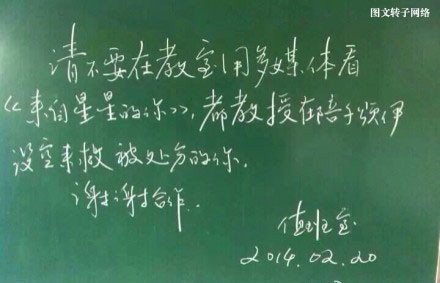 图文转子网络
请不要在教室用多媒体看
《来自星星的你》,都教授在陪千颂伊
没空来救被处分的你.
谢谢合作.
值班室
2014.02.20